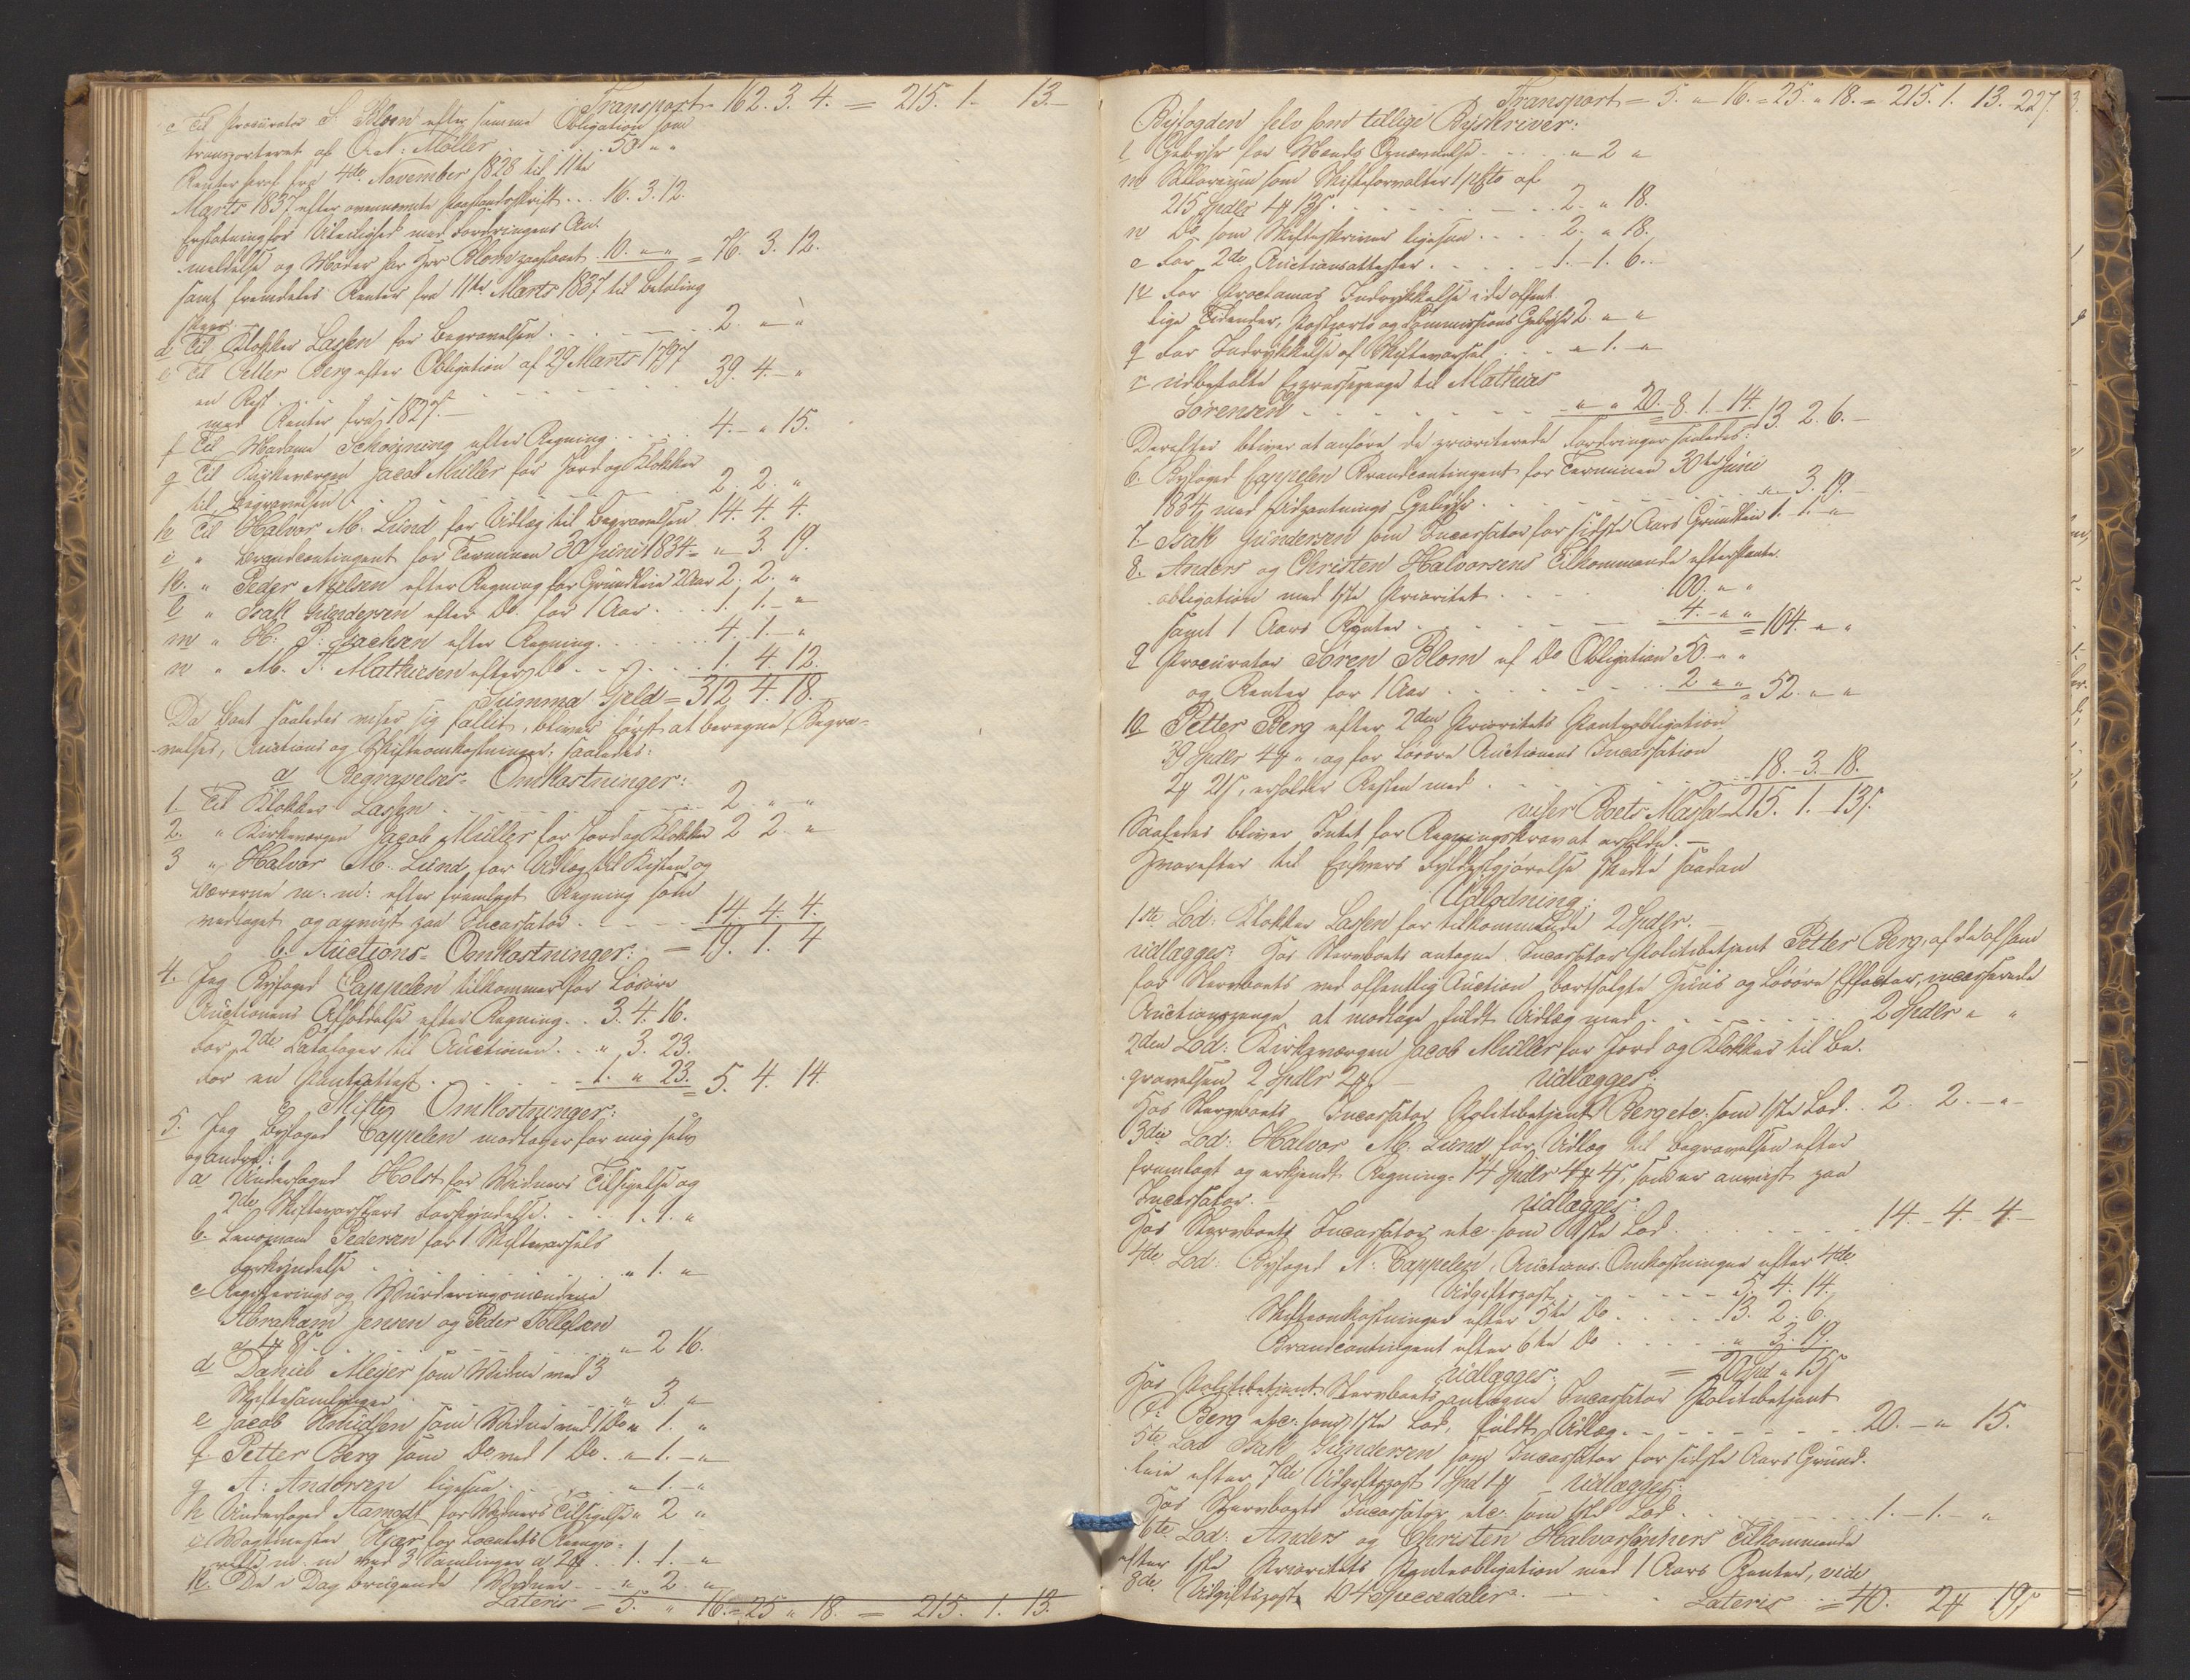 Transport- 162. 3. 4. = 215. 1. 13.-
c Til Procurator S. Blom efter samme Obligation som
transporteret af A. N: Møller . . . . 50 " "
Renter heraf fra 4de November 1828 til 11te
Marts 1837 efter ovennævnte Paastandsskrift . . . 16. 3. 12.
Erstatning for Uleilighed med Fordringens An-
meldelse og Møder har Hr Blom paastaaet 10. " " = 76. 3. 12.
samt fremdeles Renter fra 11te Marts 1837 til Betaling
skeer.
d Til Klokker Lassen for Begravelsen . . . 2. " "
e Til Petter Berg efter Obligation af 29 Marts 1797
en Rest . . . 39. 4. "
med Renter fra 1827.-
f Til Madame Schøning efter Regning . . . 4. - " 15.
g Til Kirkeværgen Jacob Müller for Jord og Klokker
til Begravelsen . . . 2. 2. "
h Til Halvor M. Lund for Udlæg til Begravelsen 14. 4. 4.
i " Brandcontingent for Terminen 30 Juni 1834 = " 3. 19.
k. " Peder Nielsen efter Regning for Grundleie 2 Aar 2. 2. "
l " Isak Gundersen efter Do for 1 Aar . . . 1. 1. - "
m " H: P: Isachsen efter Regning . . . 4. 1. - "
n " M. T. Mathiesen efter Do . . . 1. 4. 12.
Summa Gield = 312. 4. 18.
Da Boet saaledes viser sig fallit, bliver først at beregne Begra-
velses, Auctions og Skifteomkostninger, saaledes:
a Begravelses- Omkostninger:
1. Til Klokker Lassen . . . 2 " - "
2. " Kirkeværgen Jacob Müller for Jord og Klokker 2 2. "
3 " Halvor M. Lund for Udlæg til Kisten og
Bærerne m. m: efter fremlagt Regning som
vedtaget og anvist paa Incassator . . . 14. 4. 4.
b. Auctions- Omkostninger: = 19. 1. 4
4. Jeg Byfoged Cappelen tilkommer for Løsøre
Auctionens Afholdelse efter Regning . . 3. 4. 16.
For 2de Cataloger til Auctionen . . " 3. 23.
For en Panteattest . . . 1. " 23. = 5. 4. 14.
c Skifte Omkostninger:
5. Jeg Byfoged Cappelen modtager for mig selv
og andre:
a Underfoged Holst for Vidners Tilsigelse og
2de Skiftevarslers Forkyndelse . . . 1. 1. "
b. Lensmand Pedersen for 1 Skiftevarsels
Forkyndelse . . . " 1. "
c Registerings og Vurderingsmændene
Abraham Jensen og Peder Tollefsen
a 1 ℔ 8 ß . . . " 2 16.
d Daniel Meyer som Vidne med 3
Skiftesamlinger . . . " 3. "
e Jacob Knudsen som Vidne med 1 Do " 1. "
f Petter Berg som Do med 1 Do. " 1. - "
g A: Andersen ligesaa . . . " 1. - "
h Underfoged Aamodt for Vidners Tilsigelse " 2 "
i Vagtmester Kjær for Localets Rengjø-
relse m. m ved 3 Samlinger a 2 ℔ . . 1. 1. - "
k. De i Dag brugende Vidner . . " 2. "
Lateris = 5. " 16. = 25 " 18. = 215. 1. 13.
Transport = 5. " 16. = 25. " 18. = 215. 1. 13. 227.
Byfogden selv som tillige Byskriver:
l Gebyhr for Mænds Opnævnelse . . . " 2 "
m Sallarium som Skifteforvalter 1 pCto af
215 Spdlr 1 ℔ 13 ß . . . 2. " 18.
n Do som Skifteskriver ligesaa . . . 2. " 18.
o For 2de Auctionsattester . . . 1. - 1. 6. -
p For Proclamas Indrykkelse i de offent-
lige Tidender, Postporto og Commissions Gebyhr 2. " "
q For Indrykkelse af Skiftevarsel . . . " 1. "
r udbetalte Expressepenge til Mathias
Sørensen . . . " " 20. = 8. 1. 14. 13. 2. 6. -
Derefter bliver at anføre de prioriterede Fordringer saaledes:
6. Byfoged Cappelen Brandcontingent for Terminen 30te Juni
1834 med Udpantnings Gebyhr . . . " 3. 19. -
7. Isak Gundersen som Incassator for sidste Aars Grundleie 1. 1. "
8. Anders og Christen Halvorsens Tilkommende efter Pante-
obligation med 1ste Prioritet . . . 100. " "
samt 1 Aars Renter . . . 4. " " = 104. " "
9 Procurator Søren Blom af Do Obligation 50. " "
og Renter for 1 Aar . . . 2 " " = 52. " "
10 Petter Berg efter 2den Prioritets Panteobligation
39 Spdlr 4 ℔ " og for Løsøre Auctionens Incassation
2 ℔ 21 ß, erholder Resten med . . . 18. - 3. 18.
viser Boets Masse = 215. 1. 13 ß.
Saaledes bliver Intet for Regningskrav at erholde. -
Hvorefter til Enhvers Fyldestgjørelse skedte saadan
Udlodning:
1ste Lod: Klokker Lassen for tilkommende 2 Spdlr.
udlægges: Hos Stervboets antagne Incassator Politibetjent Petter Berg, af de af ham
for Stervboets ved offentlig Auction bortsolgte Huus og Løsøre Effecter, incasserede
Auctionspenge at modtage fuldt Udlæg med . . . 2 Spdlr " "
2den Lod: Kirkeværgen Jacob Müller for Jord og Klokker til Be-
gravelsen 2 Spdlr 2 ℔. - udlægges:
Hos Stervboets Incassator Politibetjent Berg etc. som 1ste Lod . . 2. 2. - " -
3die Lod: Halvor M. Lund for Udlæg til Begravelsen efter
fremlagt og erkjendt Regning = 14 Spdlr 4 ℔ 4 ß, som er anvist paa
Incassator. - udlægges:
Hos Stervboets Incassator etc. som 1ste Lod . . . 14. - 4. - 4. -
4de Lod: Byfoged N: Cappelen, Auctions-Omkostninger efter 4de
Udgiftspost . . . 5. 4. 14.
Skifteomkostninger efter 5te Do . . . 13. 2. 6.
Brandcontingent efter 6te Do . . . " 3. 19.
udlægges: = 20 Spd " 15 ß
Hos Politibetjent Stervboets antagne Incassator Politibetjent
P: Berg etc: som 1ste Lod, fuldt Udlæg . . . 20. - " 15.
5te Lod Isak Gundersen som Incassator for sidste Aars Grund-
leie efter 7de Udgiftspost 1 Spd 1 ℔ udlægges:
Hos Stervboets Incassator etc: som 1ste Lod . . . 1. - 1. - "
6te Lod: Anders og Christen Halvorsønners Tilkommende
efter 1ste Prioritets Panteobligation med 1 Aars Renter, vide
8de Udgiftspost 104 Speciedaler. . . . Lateris = 40. 2 ℔ 19 ß